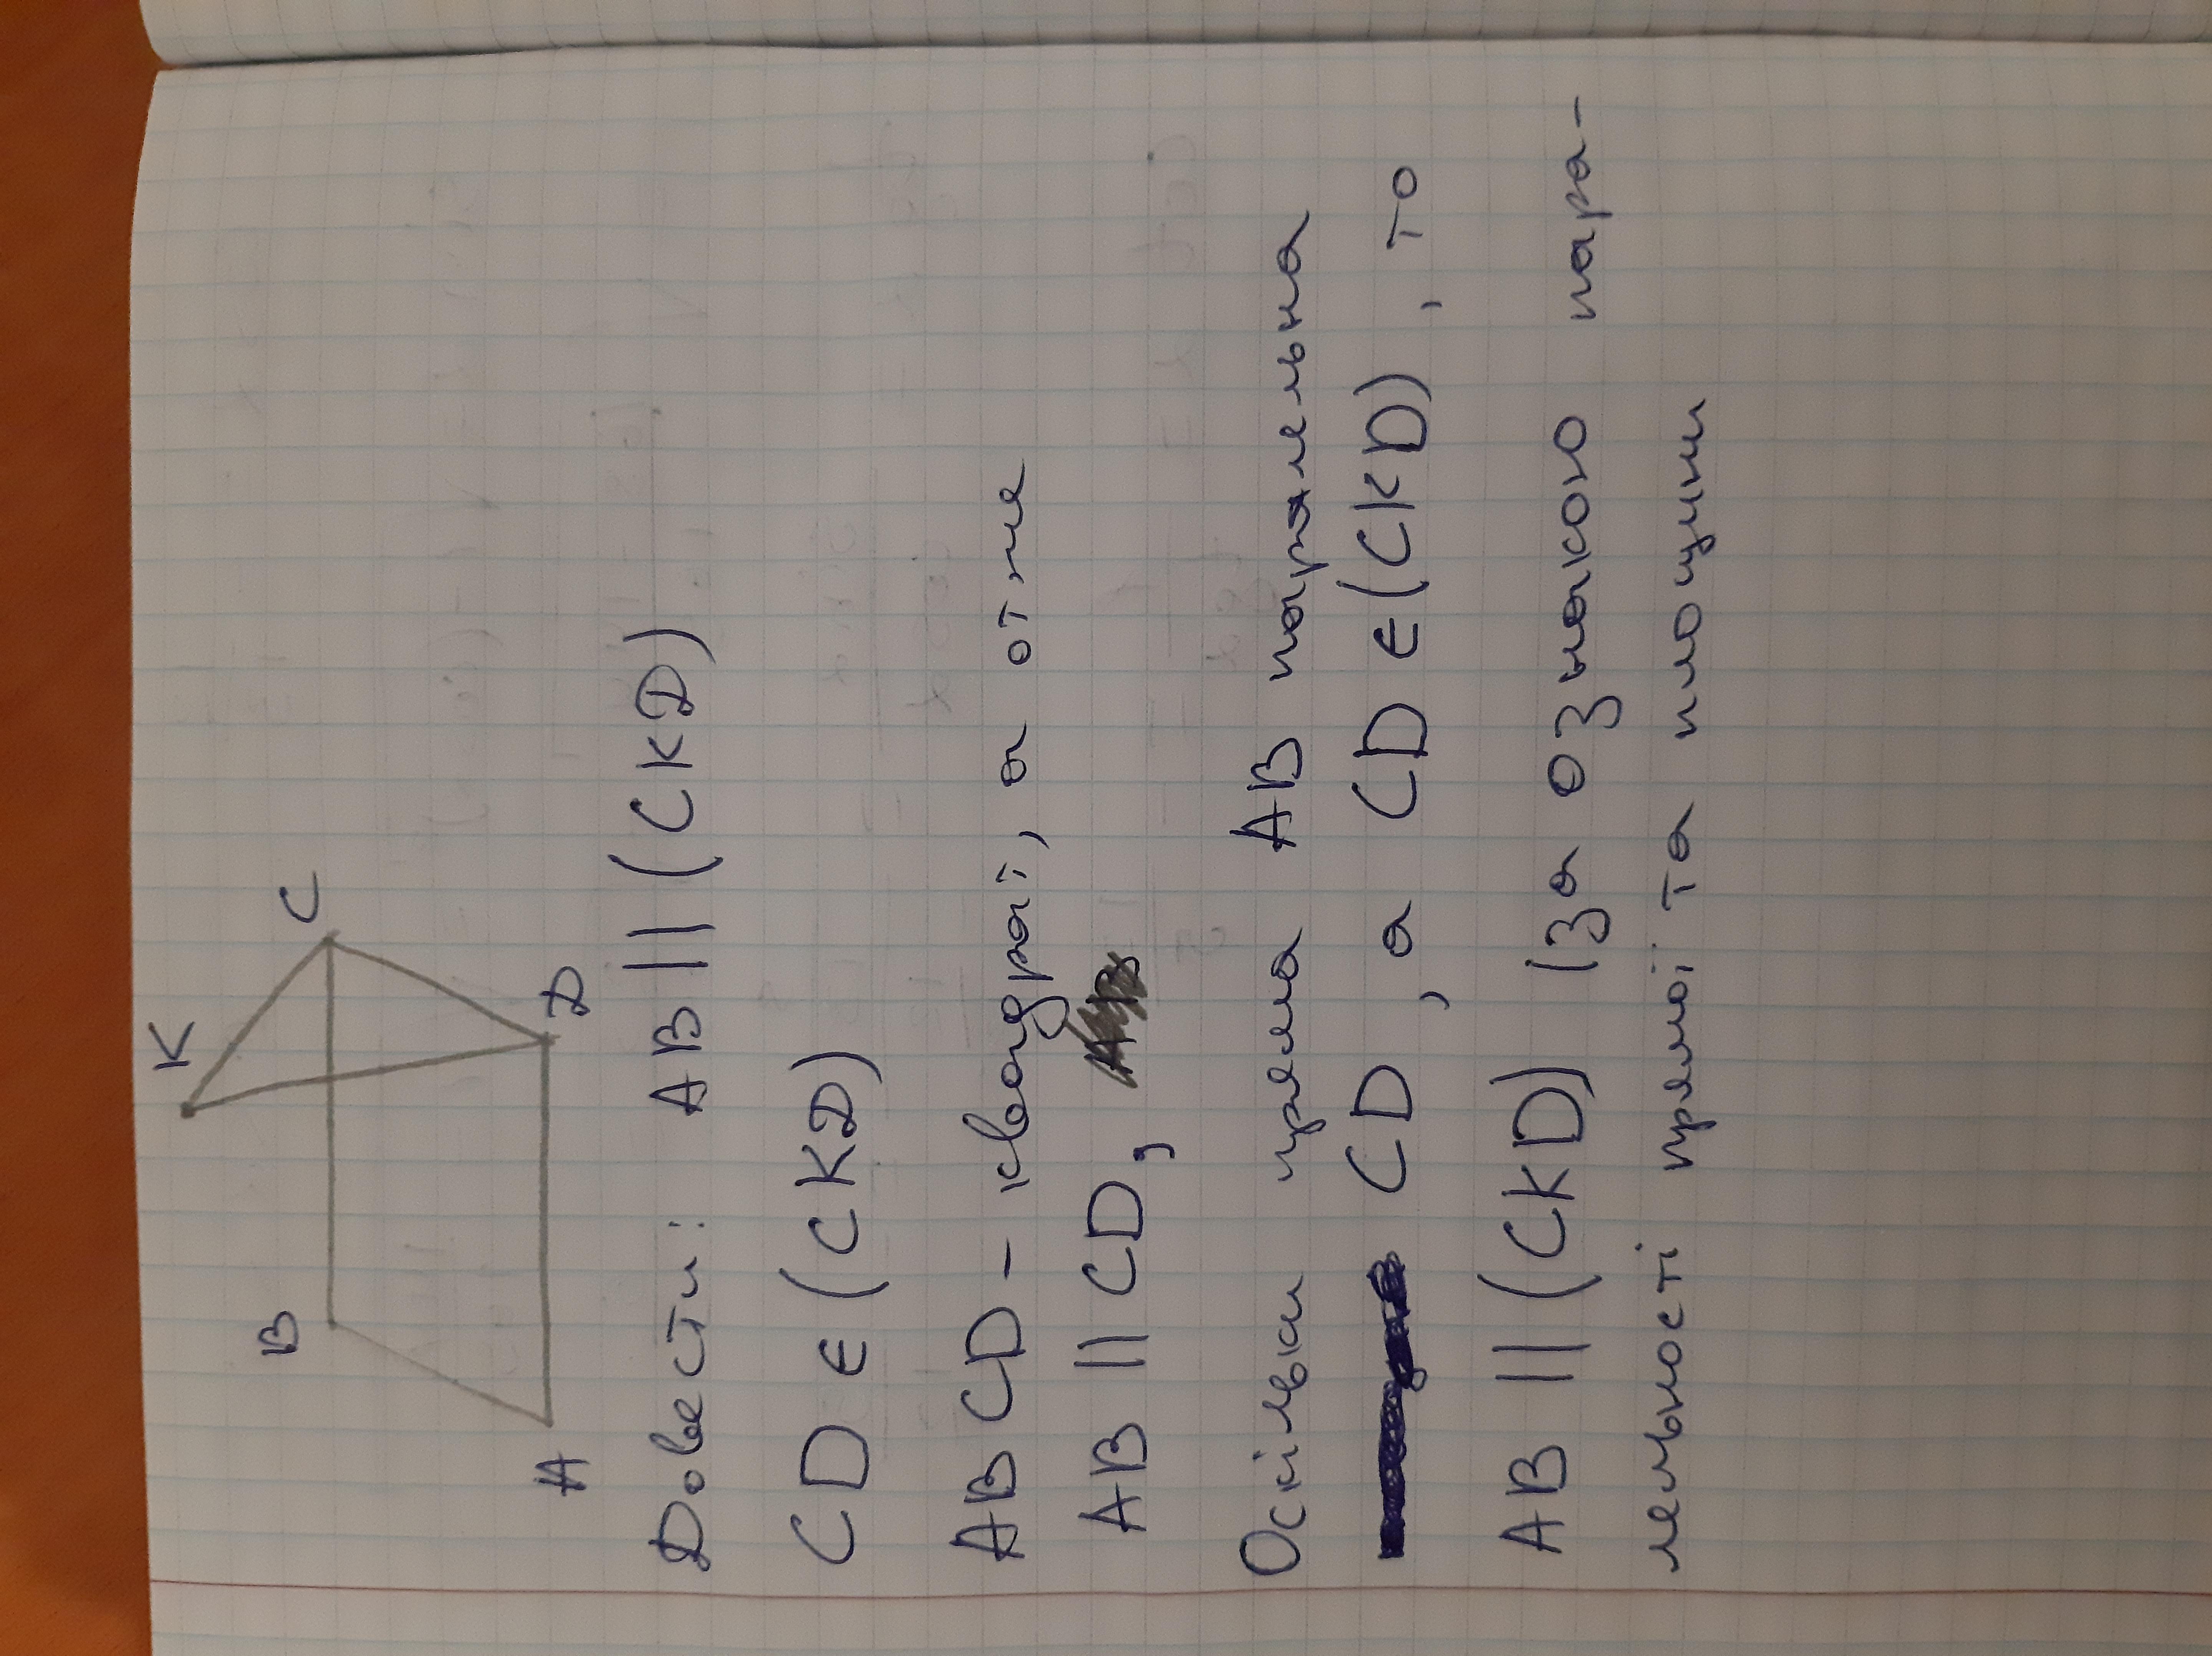 K
B
C
A
D
Довести: AB || (CKD)
CD ∈ (CKD)
ABCD – квадрат, а отже
AB || CD,
Оскільки пряма AB паралельна
CD, а CD ∈ (CKD), то
AB || (CKD) (за ознакою пара-
лельності прямої та площини